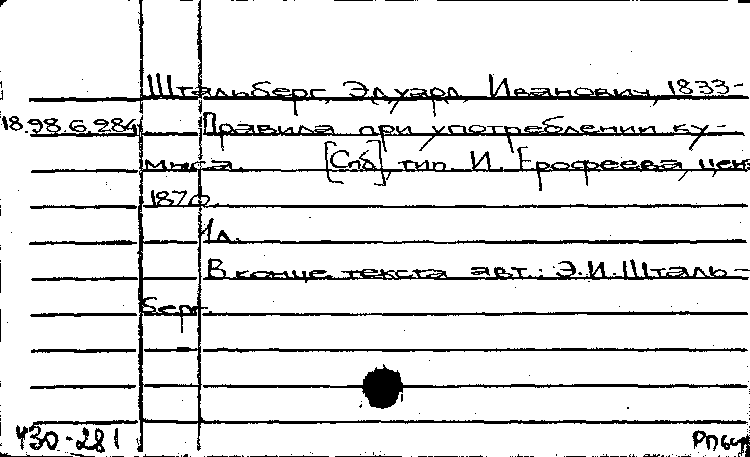 Штальберг, Эдуард Иванович, 1833-
18.98.6.284 Правила при употреблении ку-
мыса. [Спб], тип. И. Ерофеева, ценз.
1870.
1 л.
В конце текста авт.: Э.И.Шталь-
берг.
430-281